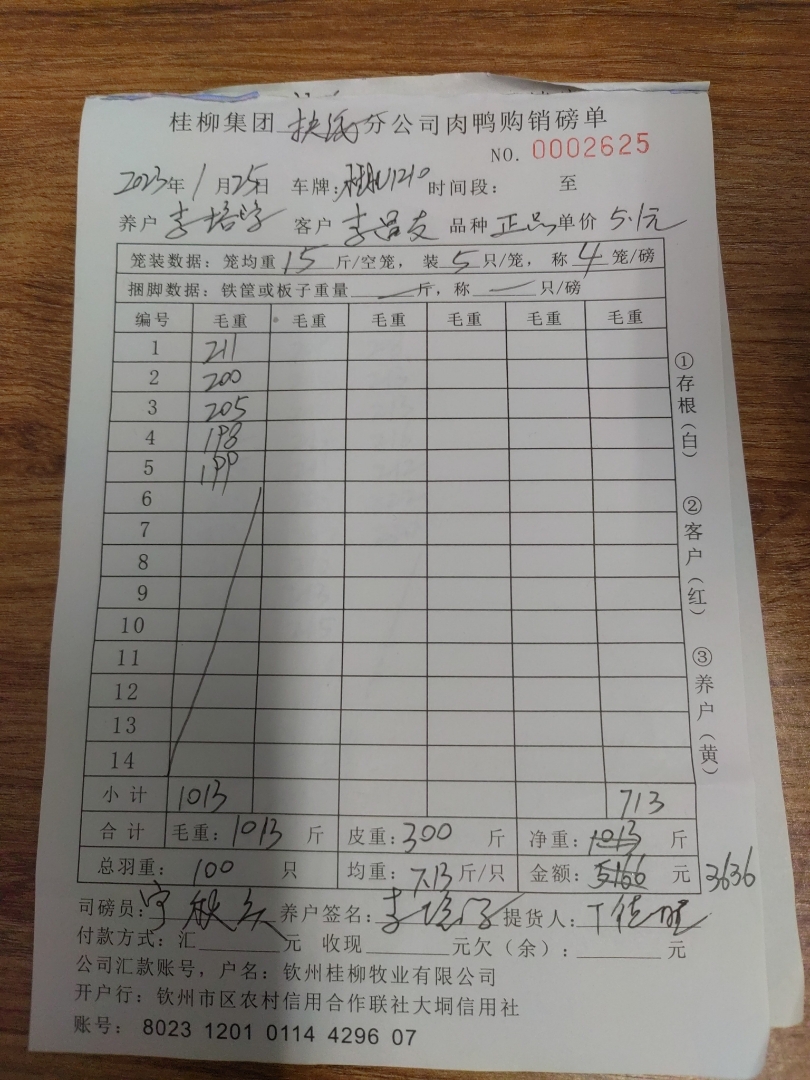 桂柳集团 扶绥 分公司肉鸭购销磅单
NO. 0002625
2023年 1 月 25日 车牌: 1210 时间段: 至
养户 李培 客户 李 友 品种 正品 单价 5.1元
笼装数据: 笼均重 15 斤/空笼, 装 5 只/笼, 称 4 笼/磅
捆脚数据: 铁筐或板子重量 — 斤, 称 — 只/磅
编号 毛重 毛重 毛重 毛重 毛重 毛重
1 211
2 200
3 205
4 198
5 199
6
7
8
9
10
11
12
13
14
小计 1013 713
合计 毛重: 1013 斤 皮重: 300 斤 净重: 1013 斤
总羽重: 100 只 均重: 7.13 斤/只 金额: 5166 元 3636
司磅员: 养户签名: 李培 提货人:
付款方式: 汇 元 收现 元欠(余): 元
公司汇款账号, 户名: 钦州桂柳牧业有限公司
开户行: 钦州市区农村信用合作联社大垌信用社
账号: 8023 1201 0114 4296 07
①存根(白)
②客户(红)
③养户(黄)